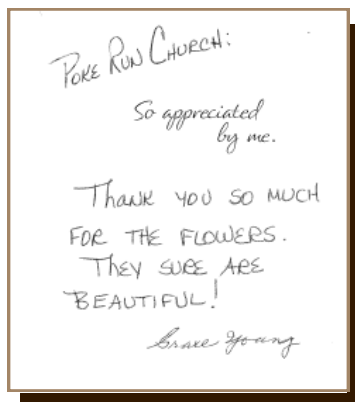 Poke Run Church:
So appreciated
by me.
Thank you so much
for the flowers.
They sure are
beautiful!
Grace Young